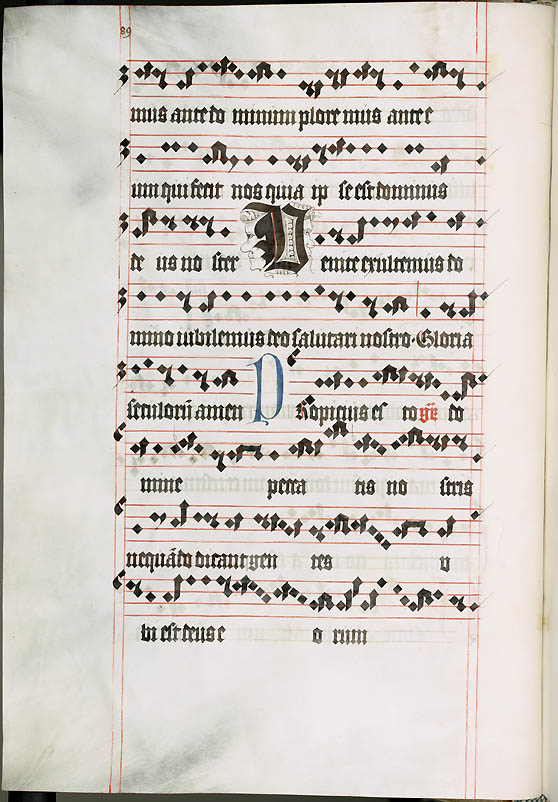 89
mus ante do minum plore mus ante e
um qui fecit nos quia ip se est dominus
de us no ster Venite exultemus do
mino iubilemus deo salutari nostro Gloria
seculoꝝ amen Propicius es to do
mine pecca tis no stris
nequādo dicant gen tes v
bi est deus e o rum